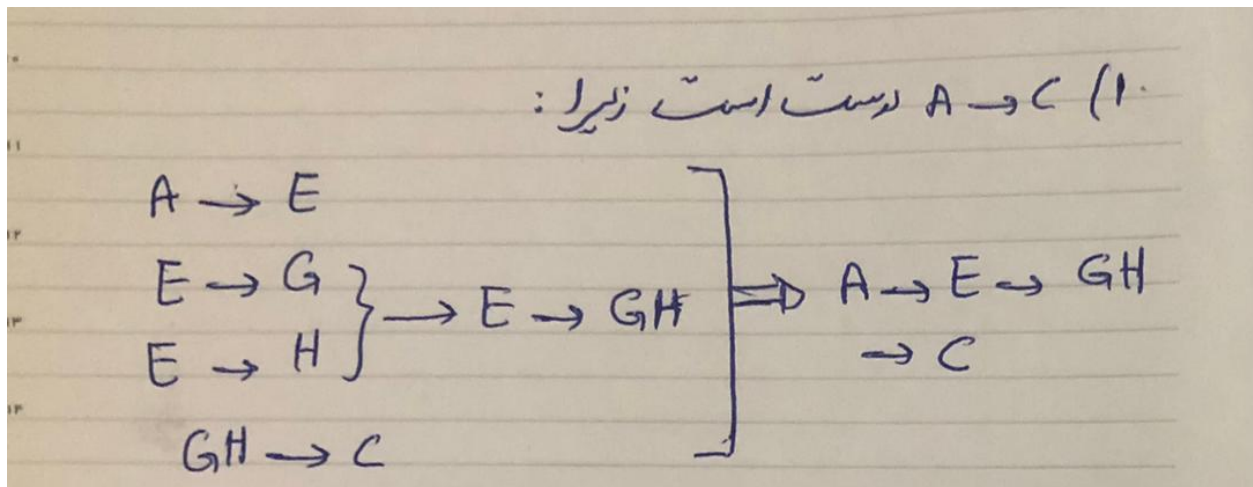 ۱۰) A → C درست است زیرا:
A → E
E → G
E → H
} → E → GH
GH → C
] ⇒ A → E → GH
→ C